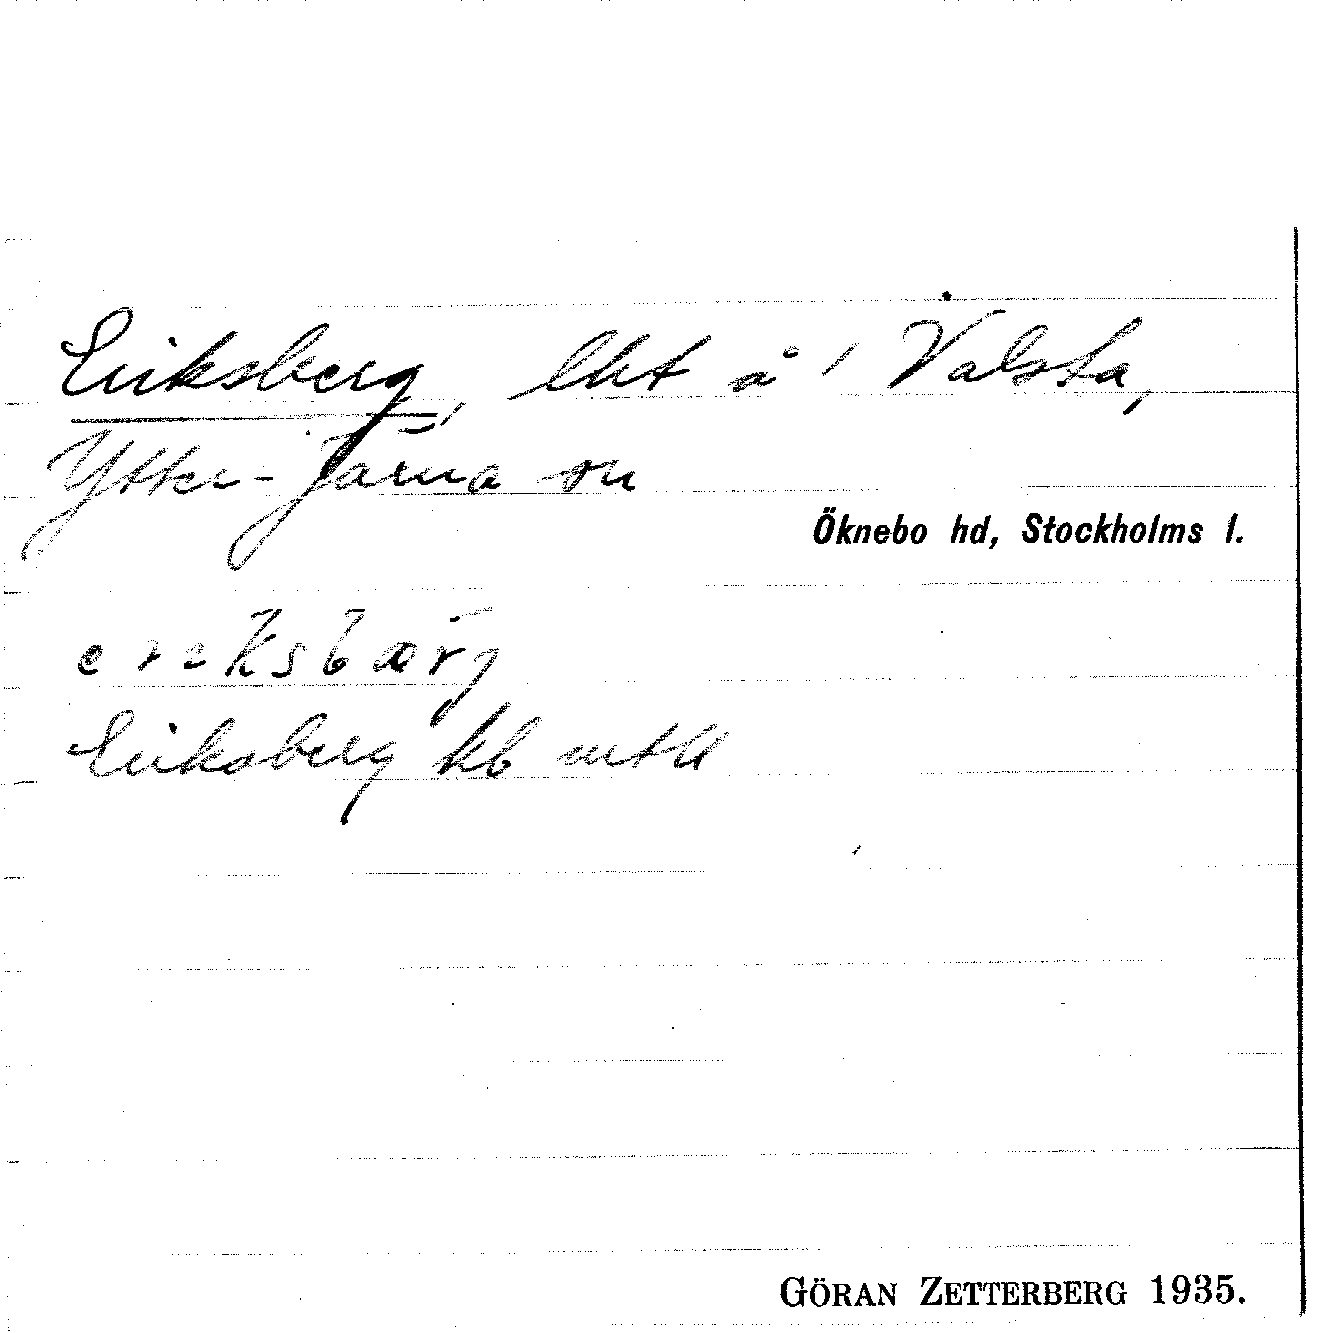 Eriksberg, lht å 1 Valsta,
Ytter-Järna sn
Öknebo hd, Stockholms l.
Eriksberg kb
GÖRAN ZETTERBERG 1935.